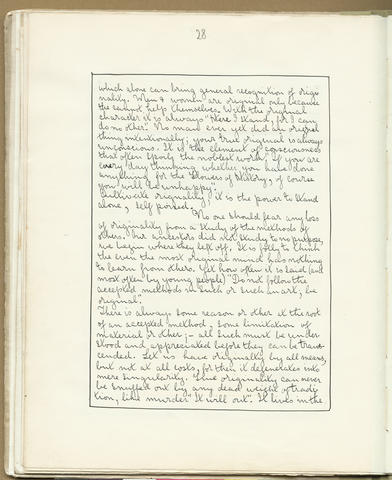 28
which alone can bring general recognition of origi-
nality. Men & women are original only because
the cannot help themselves. With the original
character it is always "Here I stand, for I can
do no other". No man ever yet did an original
thing intentionally: your true original is always
unconscious. It is the element of consciousness
that often spoils the noblest work. If you are
every day thinking whether you have done
anything for the "Flowers of History", of course
you will be unhappy".
Cultivate originality; it is the power to stand
alone, self poised.
No one should fear any loss
of originality from a study of the methods of
others. Our ancestors did not study to no purpose,
we begin where they left off. It is folly to think
the even the most original mind has nothing
to learn from others. Yet how often it is said (and
most often by young people) "Do not follow the
accepted methods in such or such an art; be
original".
There is always some reason or other at the root
of an accepted method; some limitation of
material or other; - all such must be under
stood and appreciated before they can be trans-
cended. Let us have originality by all means,
but not at all costs, for then it degenerates into
mere singularity. True originality can never
be snuffed out by any dead weight of tradi-
tion, like murder "it will out". It lives in the